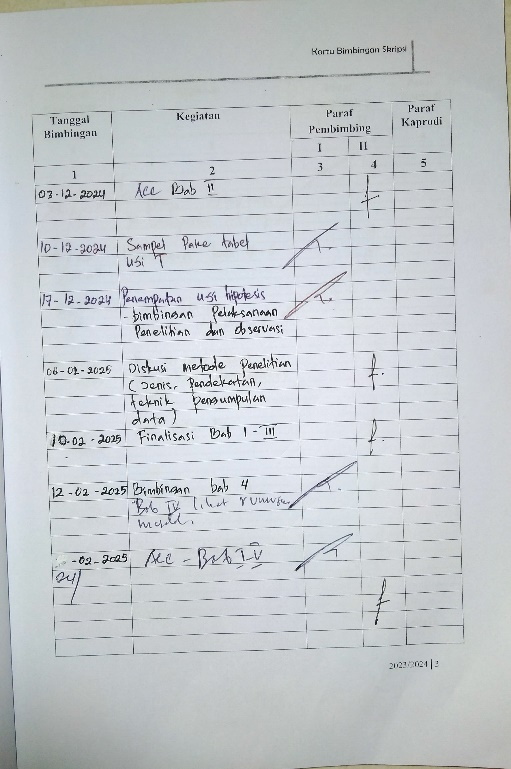 Kartu Bimbingan Skripsi
Tanggal Bimbingan
Kegiatan
Paraf Pembimbing
Paraf Kaprudi
I II
1 2 3 4 5
03-12-2024 Acc Bab II
10-12-2024 Sampel Pake tabel
usi T
17-12-2024 Penempatan usi hipotesis
- bimbingan Pelaksanaan
Penelitian dan observasi
06-02-2025 Diskusi metode Penelitian
(Jenis, Pendekatan,
teknik pengumpulan
data)
10-02-2025 Finalisasi Bab I - III
12-02-2025 Bimbingan bab 4
Bab IV lihat rumusan
-02-2025 Acc - Bab IV
24/
2023/2024 | 3